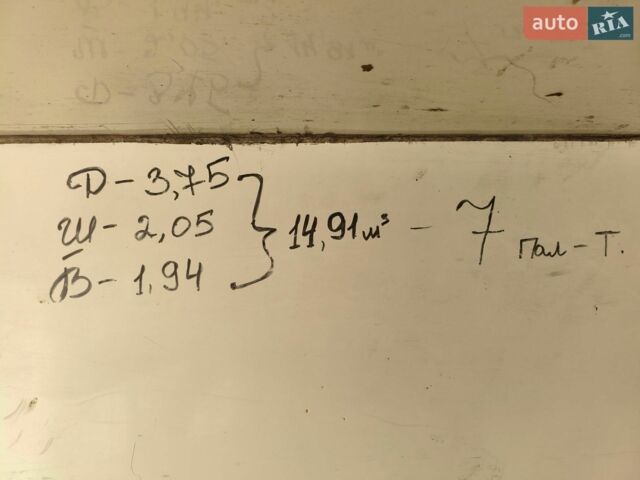 auto RIA .com
Д - 3,75
Ш - 2,05
В - 1,94
14,91 м³ - 7 Пал-Т.